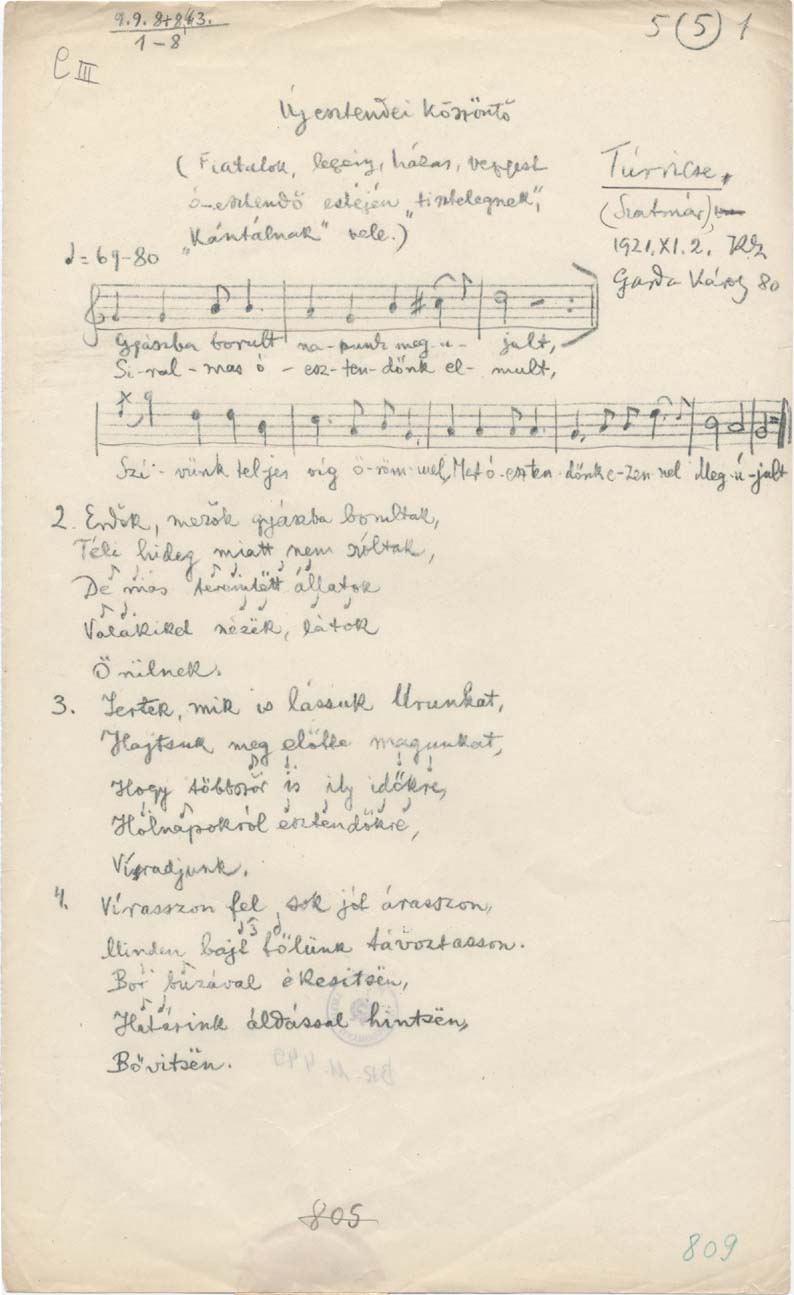 9. 9. 8+8, 3.
1-8
5 (5) 1
C III
Új esztendei köszöntő
(Fiatalok, legény, házas, vegyest
ó-esztendő estéjén "tisztelegnek",
"Kántálnak" vele.)
Túrricse,
(Szatmár),
1921. XI. 2.
Garda Károly 80
♩= 69-80
Gyászba borult na-punk meg-u- jult,
Si-ral-mas ó-esz-ten-dőnk el- mult,
Szí-vünk teljes víg ö-röm-mel, Mert ó-eszten-dőnk e-zen-nel Meg-ú-jult
2. Erdők, mezők gyászba borultak,
Téli hideg miatt nem szóltak,
De más teremtëtt állatok
Valakikd nézëk, látok
Örülnek.
3. Jertek, mik is lássuk Urunkat,
Hajtsuk meg előtte magunkat,
Hogy többször is ily időkre,
Holnapokról esztendőkre,
Virradjunk.
4. Virasszon fel, sok jót árasszon,
Minden bajt tőlünk távoztasson.
Bor búzával ékesitsën,
Határink áldással hintsën,
Bővitsën.
BR. M. 449
805
809